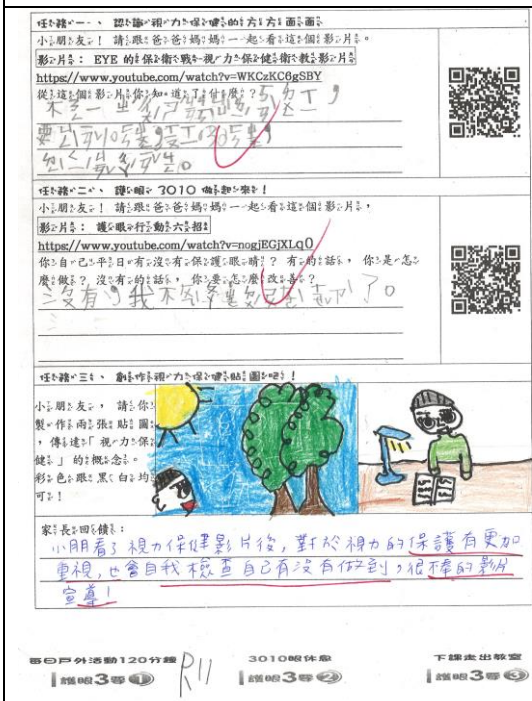 任務一、 認識視力保健的方方面面
小朋友！ 請跟爸爸媽媽一起看這個影片。
影片： EYE 的保衛戰-視力保健衛教影片
https://www.youtube.com/watch?v=WKCzKC6gSBY
從這個影片你知道了什麼？
任務二、 護眼 3010 做起來！
小朋友！ 請跟爸爸媽媽一起看這個影片，
影片： 護眼行動六招
https://www.youtube.com/watch?v=nogjEGjXLq0
你自己平日有沒有保護眼睛？ 有的話， 你是怎
麼做？ 沒有的話， 你要怎麼改善？
沒有，我不
任務三、 創作視力保健貼圖吧！
小朋友， 請你
製作兩張貼圖
，傳達「視力保
健」的概念。
彩色跟黑白均
可！
家長回饋：
小朋看了視力保健影片後，對於視力的保護有更加
重視，也會自我檢查自己有沒有做到，很棒的影片
宣導！
每日戶外活動120分鐘
3010眼休息
下課走出教室
護眼3零 1
R11
護眼3零 2
護眼3零 3